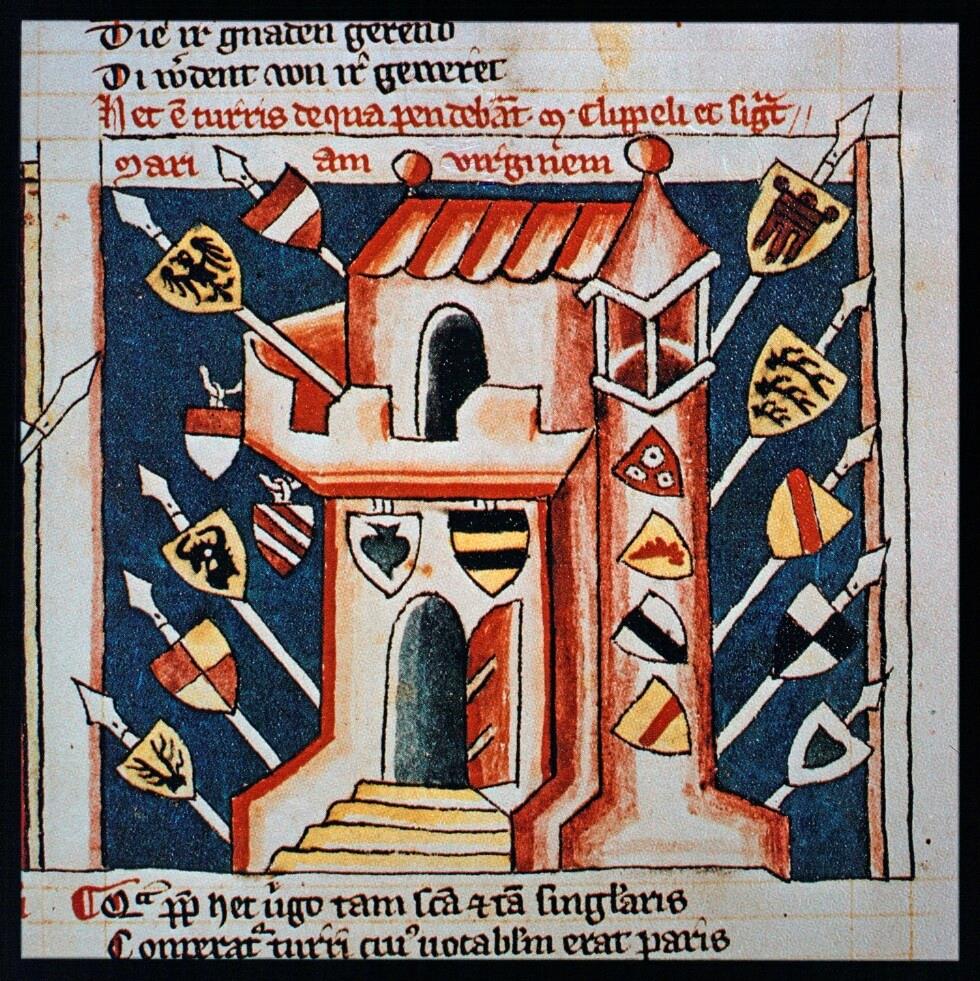 Die ir gnaden gerend
Di wdent von ir geweret
Hec ē turris de qua pendebāt · m · Clippeli et sigāt
Mari am virginem
Qᵃ ꝓp hec uͥgo tam scā ⁊ tā singlaris
Conperatᵃ turri cui⁹ notablm erat paris